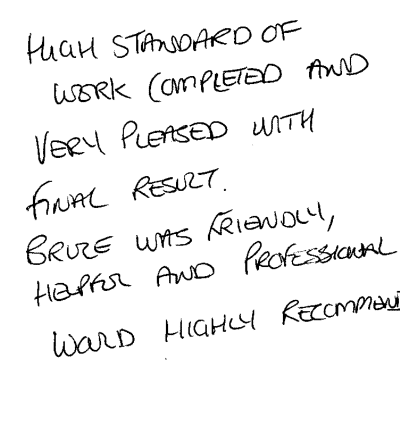 HIGH STANDARD OF
WORK COMPLETED AND
VERY PLEASED WITH
FINAL RESULT.
BRUCE WAS FRIENDLY,
HELPFUL AND PROFESSIONAL
WOULD HIGHLY RECOMMEND